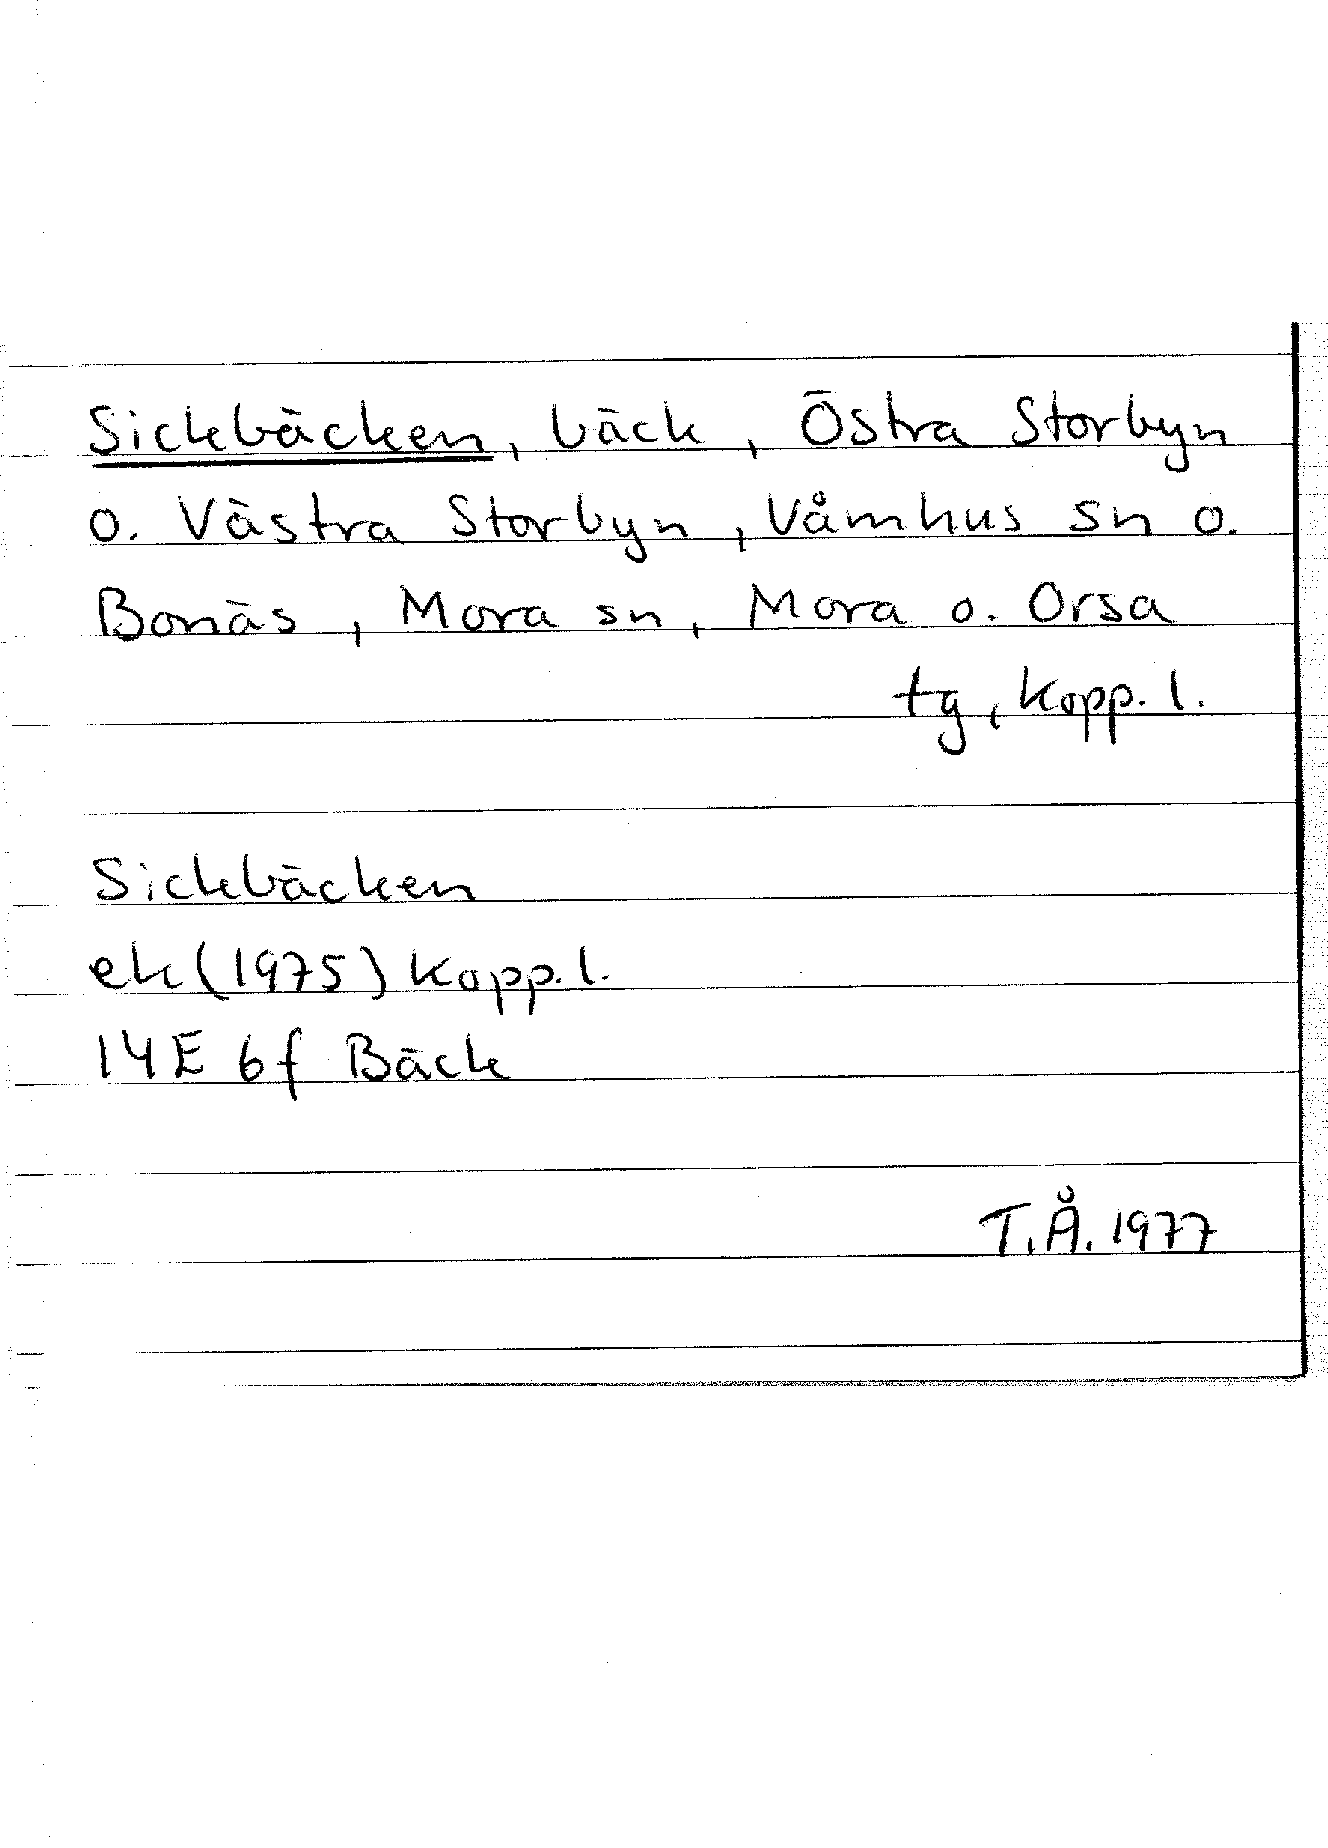 Sickbäcken, bäck, Östra Storbyn
o. Västra Storbyn, Våmhus sn o.
Bonäs, Mora sn, Mora o. Orsa
tg, Kopp. l.
Sickbäcken
ek (1975) Kopp. l.
14E 6f Bäck
T.Å. 1977